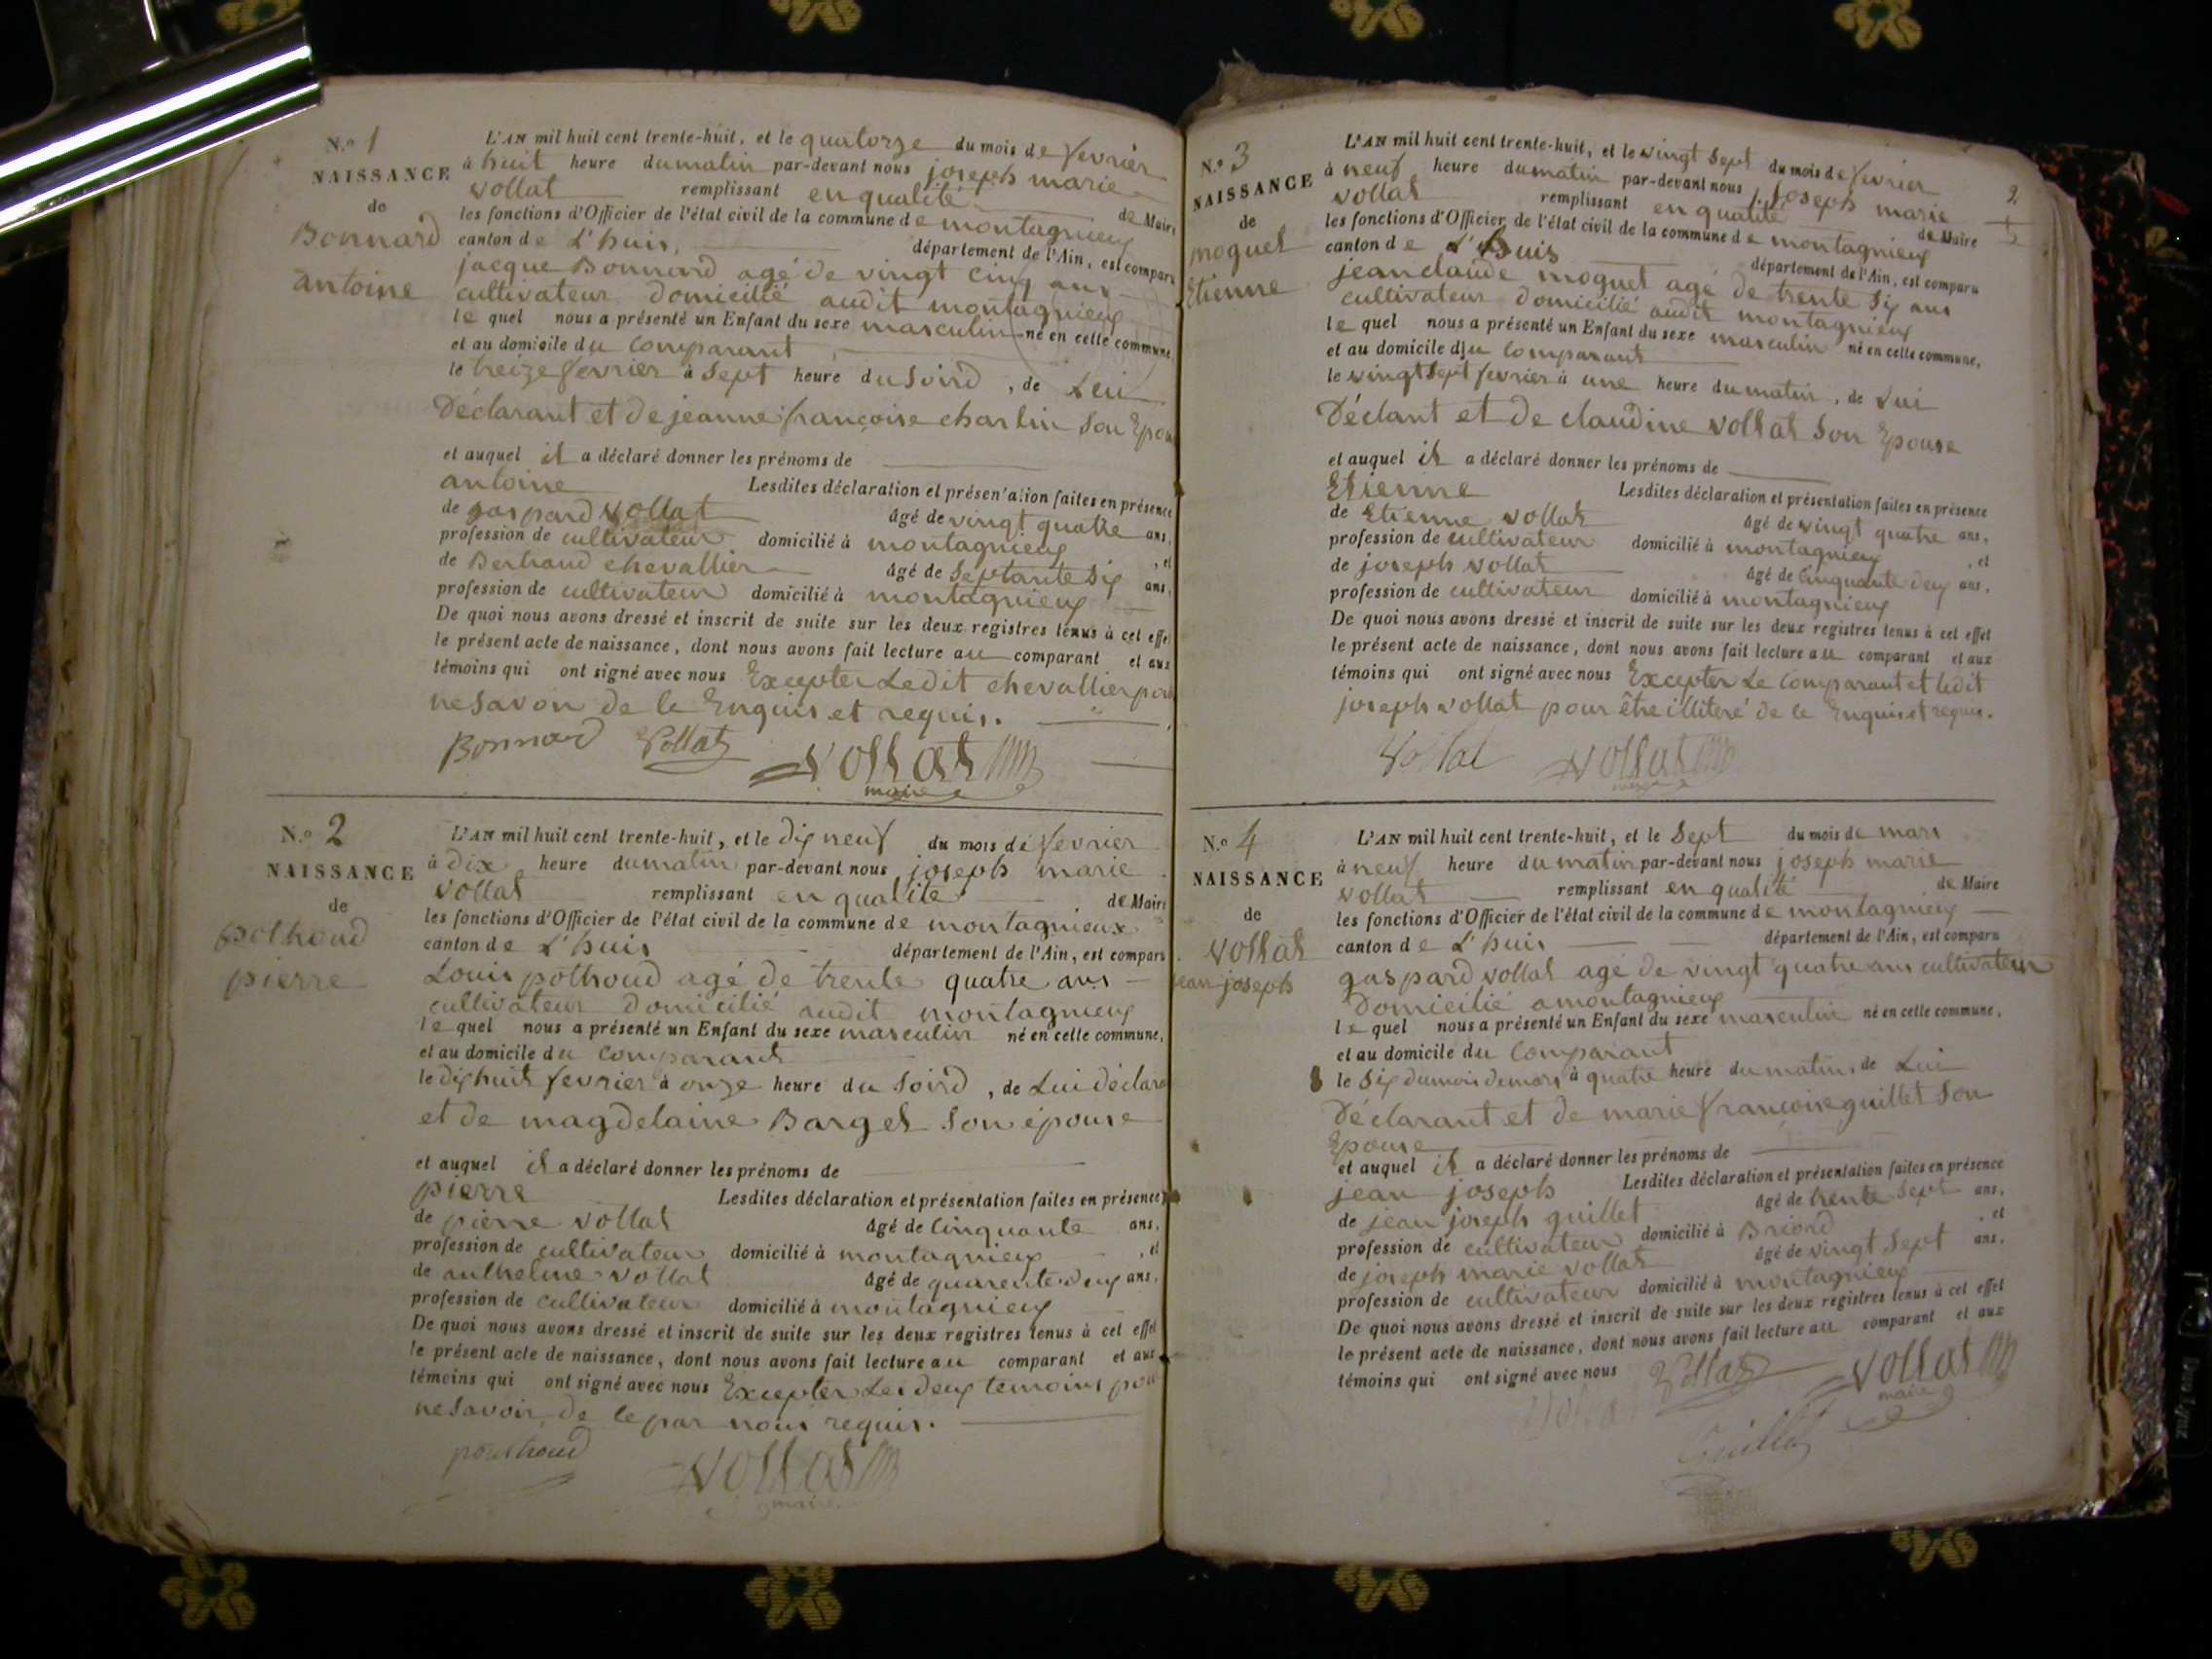 N.o 1
NAISSANCE
de
Bonnard
antoine
L'AN mil huit cent trente-huit, et le quatorze du mois de fevrier
à huit heure du matin par-devant nous joseph marie
vollat remplissant en qualité de Maire
les fonctions d'Officier de l'état civil de la commune de montagnieux
canton de L'huis, département de l'Ain, est comparu
jacque Bonnard agé de vingt cinq ans
cultivateur domicilié audit montagnieux
le quel nous a présenté un Enfant du sexe masculin né en cette commune,
et au domicile du comparant
le treize fevrier à sept heure du soird, de Lui
Déclarant et de jeanne françoise charlin son Epou
et auquel il a déclaré donner les prénoms de
antoine Lesdites déclaration et présentation faites en présence
de gaspard vollat âgé de vingt quatre ans,
profession de cultivateur domicilié à montagnieux, et
de Bertrand chevallier âgé de septante six ans,
profession de cultivateur domicilié à montagnieux
De quoi nous avons dressé et inscrit de suite sur les deux registres tenus à cet effe
le présent acte de naissance, dont nous avons fait lecture au comparant et aux
témoins qui ont signé avec nous Excepter Ledit chevallier pou
ne savoir de le Enquis et requis.
Bonnard Vollat vollat
maire
N.o 2
NAISSANCE
de
polhoud
pierre
L'AN mil huit cent trente-huit, et le dix neuf du mois de fevrier
à dix heure du matin par-devant nous joseph marie
vollat remplissant en qualité de Maire
les fonctions d'Officier de l'état civil de la commune de montagnieux
canton de L'huis département de l'Ain, est comparu
Louis polhoud agé de trente quatre ans
cultivateur domicilié audit montagnieux
le quel nous a présenté un Enfant du sexe masculin né en cette commune,
et au domicile du comparant
le dix huit fevrier à onze heure du soird, de Lui déclara
et de magdelaine Barget son épouse
et auquel il a déclaré donner les prénoms de
pierre Lesdites déclaration et présentation faites en présence
de pierre vollat âgé de cinquante ans,
profession de cultivateur domicilié à montagnieux, et
de anthelme vollat âgé de quarente deux ans,
profession de cultivateur domicilié à montagnieux
De quoi nous avons dressé et inscrit de suite sur les deux registres tenus à cet effet
le présent acte de naissance, dont nous avons fait lecture au comparant et aux
témoins qui ont signé avec nous Excepter Les deux temoins pou
ne savoir de le par nous requis.
pouthoud vollat
maire
2
N.o 3
NAISSANCE
de
moguet
Etienne
L'AN mil huit cent trente-huit, et le vingt sept du mois de fevrier
à neuf heure du matin par-devant nous joseph marie
vollat remplissant en qualité de Maire
les fonctions d'Officier de l'état civil de la commune de montagnieux
canton de L'huis département de l'Ain, est comparu
jean claude moguet agé de trente six ans
cultivateur domicilié audit montagnieux
le quel nous a présenté un Enfant du sexe masculin né en cette commune,
et au domicile du comparant
le vingt sept fevrier à une heure du matin, de Lui
Déclant et de claudine vollat son Epouse
et auquel il a déclaré donner les prénoms de
Etienne Lesdites déclaration et présentation faites en présence
de Etienne vollat âgé de vingt quatre ans,
profession de cultivateur domicilié à montagnieux, et
de joseph vollat âgé de cinquante deux ans,
profession de cultivateur domicilié à montagnieux
De quoi nous avons dressé et inscrit de suite sur les deux registres tenus à cet effet
le présent acte de naissance, dont nous avons fait lecture au comparant et aux
témoins qui ont signé avec nous Excepter Le comparant et ledit
joseph vollat pour être illiteré de le Enquis et requis.
Vollat vollat
maire
N.o 4
NAISSANCE
de
vollat
jean joseph
L'AN mil huit cent trente-huit, et le sept du mois de mars
à neuf heure du matin par-devant nous joseph marie
vollat remplissant en qualité de Maire
les fonctions d'Officier de l'état civil de la commune de montagnieux
canton de L'huis département de l'Ain, est comparu
gaspard vollat agé de vingt quatre ans cultivateur
Domicilié a montagnieux
le quel nous a présenté un Enfant du sexe masculin né en cette commune,
et au domicile du comparant
le six du mois de mars à quatre heure du matin, de Lui
Déclarant et de marie françoise guillet son
Epouse
et auquel il a déclaré donner les prénoms de
jean joseph Lesdites déclaration et présentation faites en présence
de jean joseph guillet âgé de trente sept ans,
profession de cultivateur domicilié à Briord, et
de joseph marie vollat âgé de vingt sept ans,
profession de cultivateur domicilié à montagnieux
De quoi nous avons dressé et inscrit de suite sur les deux registres tenus à cet effet
le présent acte de naissance, dont nous avons fait lecture au comparant et aux
témoins qui ont signé avec nous Vollat vollat
maire
Guillet